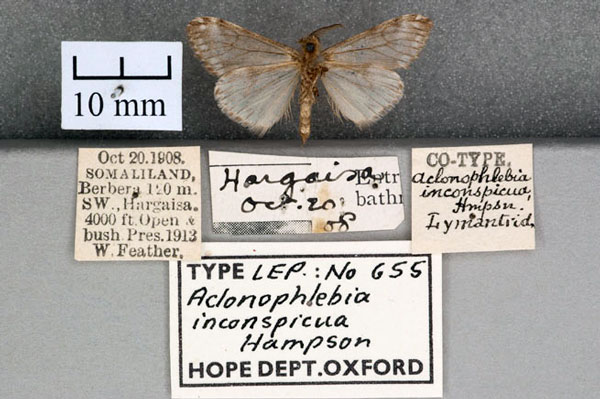 10 mm
Oct 20.1908.
SOMALILAND,
Berbera 120 m.
SW., Hargaisa.
4000 ft. Open &
bush Pres. 1913
W. Feather.
Hargaisa
Oct. 20.
08
CO-TYPE.
Aclonophlebia
inconspicua,
Hmpsn.
Lymantrid.
TYPE LEP.: No 655
Aclonophlebia
inconspicua
Hampson
HOPE DEPT. OXFORD